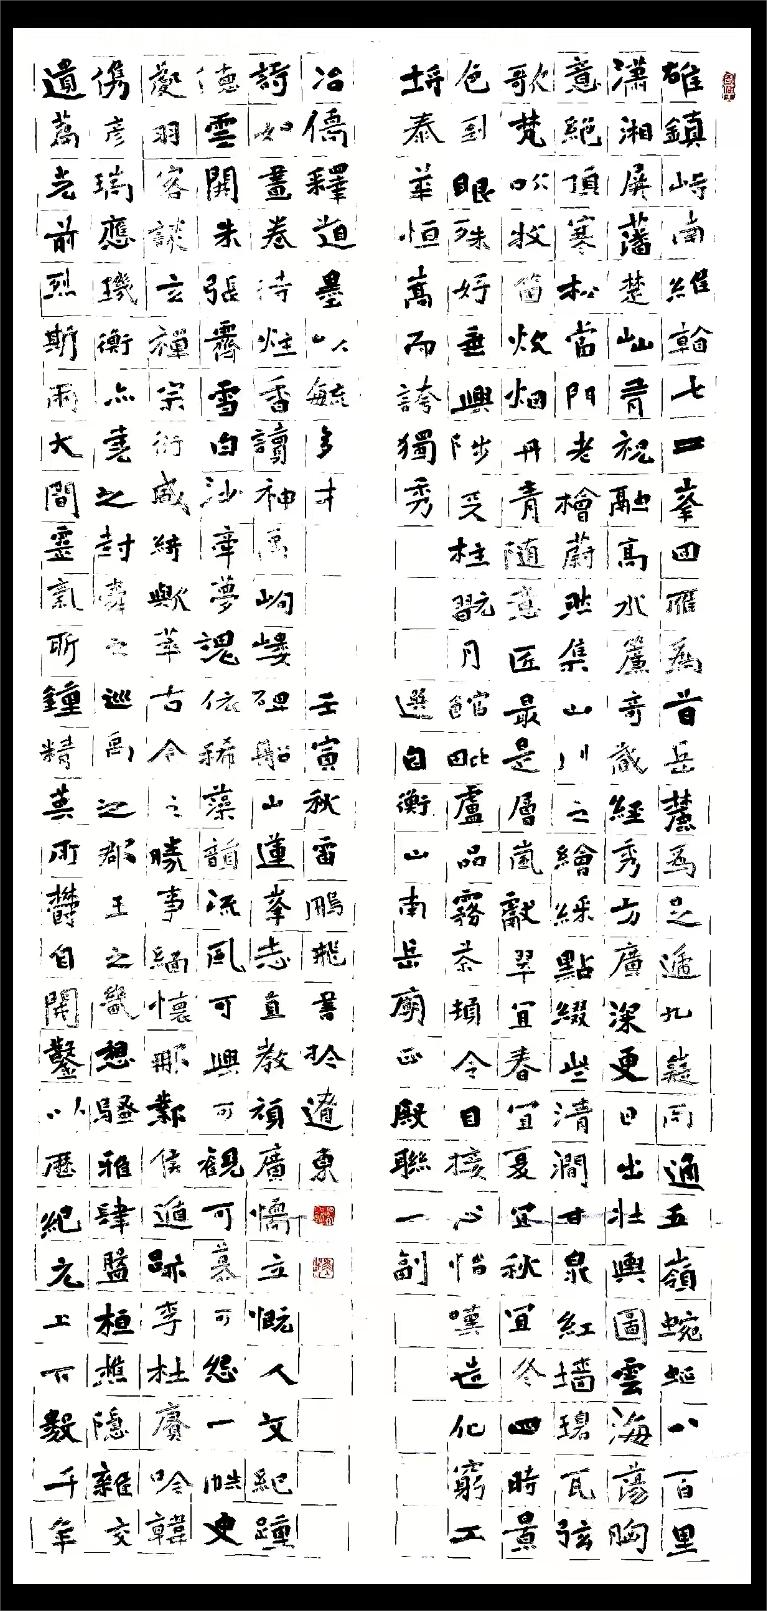 雄鎮峙南維翰七二峯回雁為首岳麓為足遞九嶷而通五嶺蜿蜒八百里
瀟湘屏藩楚山青祝融高水簾奇藏經秀方廣深更日出壯輿圖雲海蕩胸
意絕頂寒松當門老檜蔚然集山川之繪綵點綴些清澗甘泉紅墻碧瓦弦
歌梵吹牧笛炊烟丹青隨意匠最是層嵐獻翠宜春宜夏宜秋宜冬四時景
色到眼殊好乘興陟天柱翫月館毗盧品霧茶頓令目接心怡嘆造化窮工
埒泰華恒嵩而誇獨秀
選自衡山南岳廟正殿聯一副
遺蔿光前烈斯兩大間靈氣所鍾精英所鬱自開鑿以歷紀元上下數千年
儁彥瑞應璣衡亦之封之巡禹之都王之想騷雅肆監桓樵隱雜交
處羽客談玄禪宗衍盛綺歟華古今之勝事緬懷那鄴侯遁跡李杜賡吟韓
德雲開朱張霽雪白沙章夢依稀藻韻流風可興可觀可慕可怨一帙史
詩如畫卷待炷香讀神禹岣嶁碑船山蓮峯志直教頑廣懦立慨人文紀踵
冶儒釋道墨以毓多才
壬寅秋雷鵬飛書於遼東